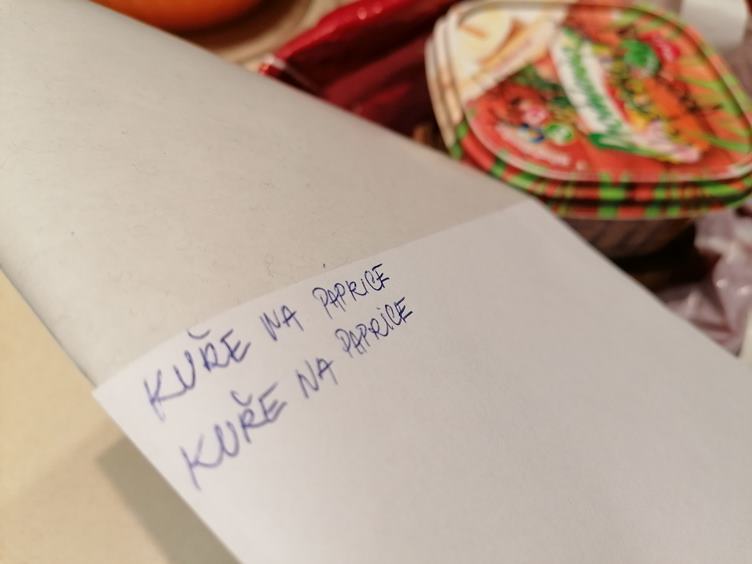 KUŘE NA PAPRICE
KUŘE NA PAPRICE